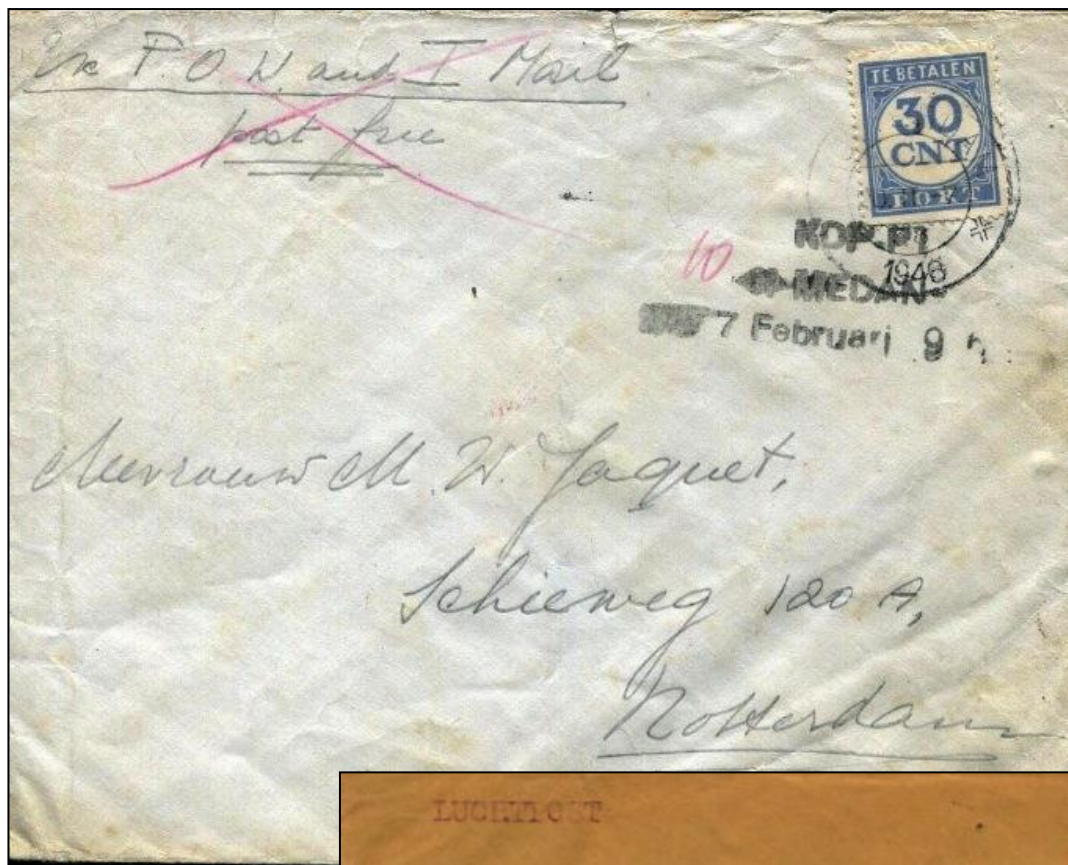 Ex P.O.W and I Mail
post free
TE BETALEN
30
CNT
PORT
KDP PT
MEDAN
1946
10
7 Februari 9
Mevrouw M. W. Jaquet,
Schieweg 120 A,
Rotterdam
LUCHTPOST